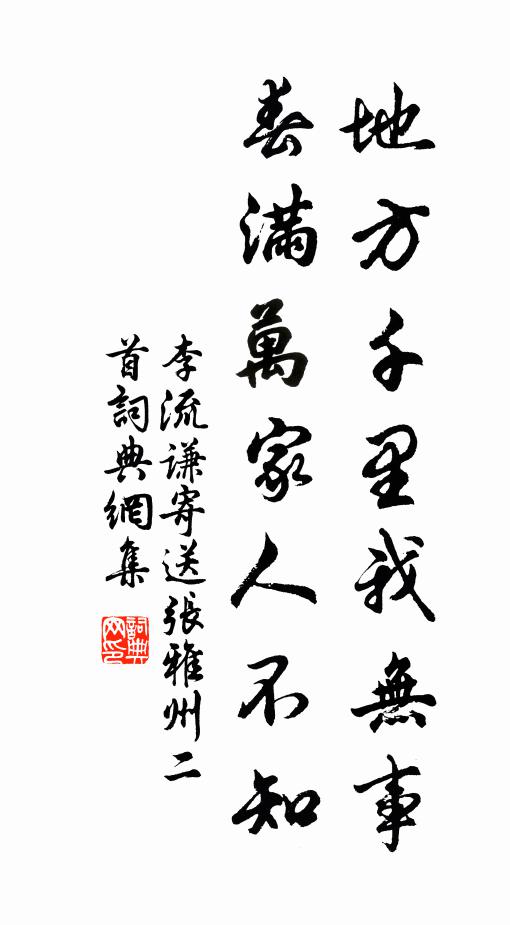 地方千里我無事
春滿萬家人不知
李流谦寄送張雅州二
首詞典網集
詞典網印